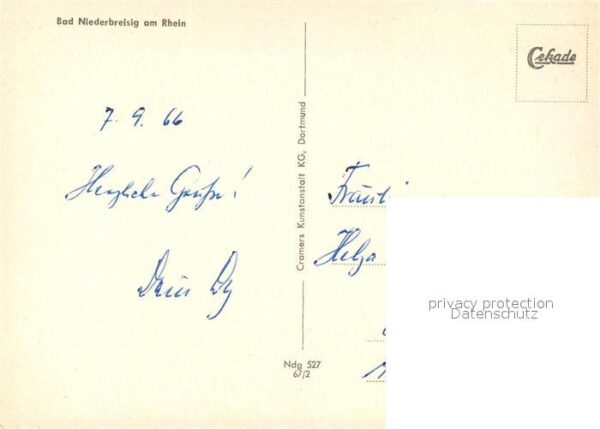 Bad Niederbreisig am Rhein
Cekade
7. 9. 66
Herzliche Grüße!
Cramers Kunstanstalt KG, Dortmund
Helga
privacy protection
Datenschutz
Ndg 527
67/2